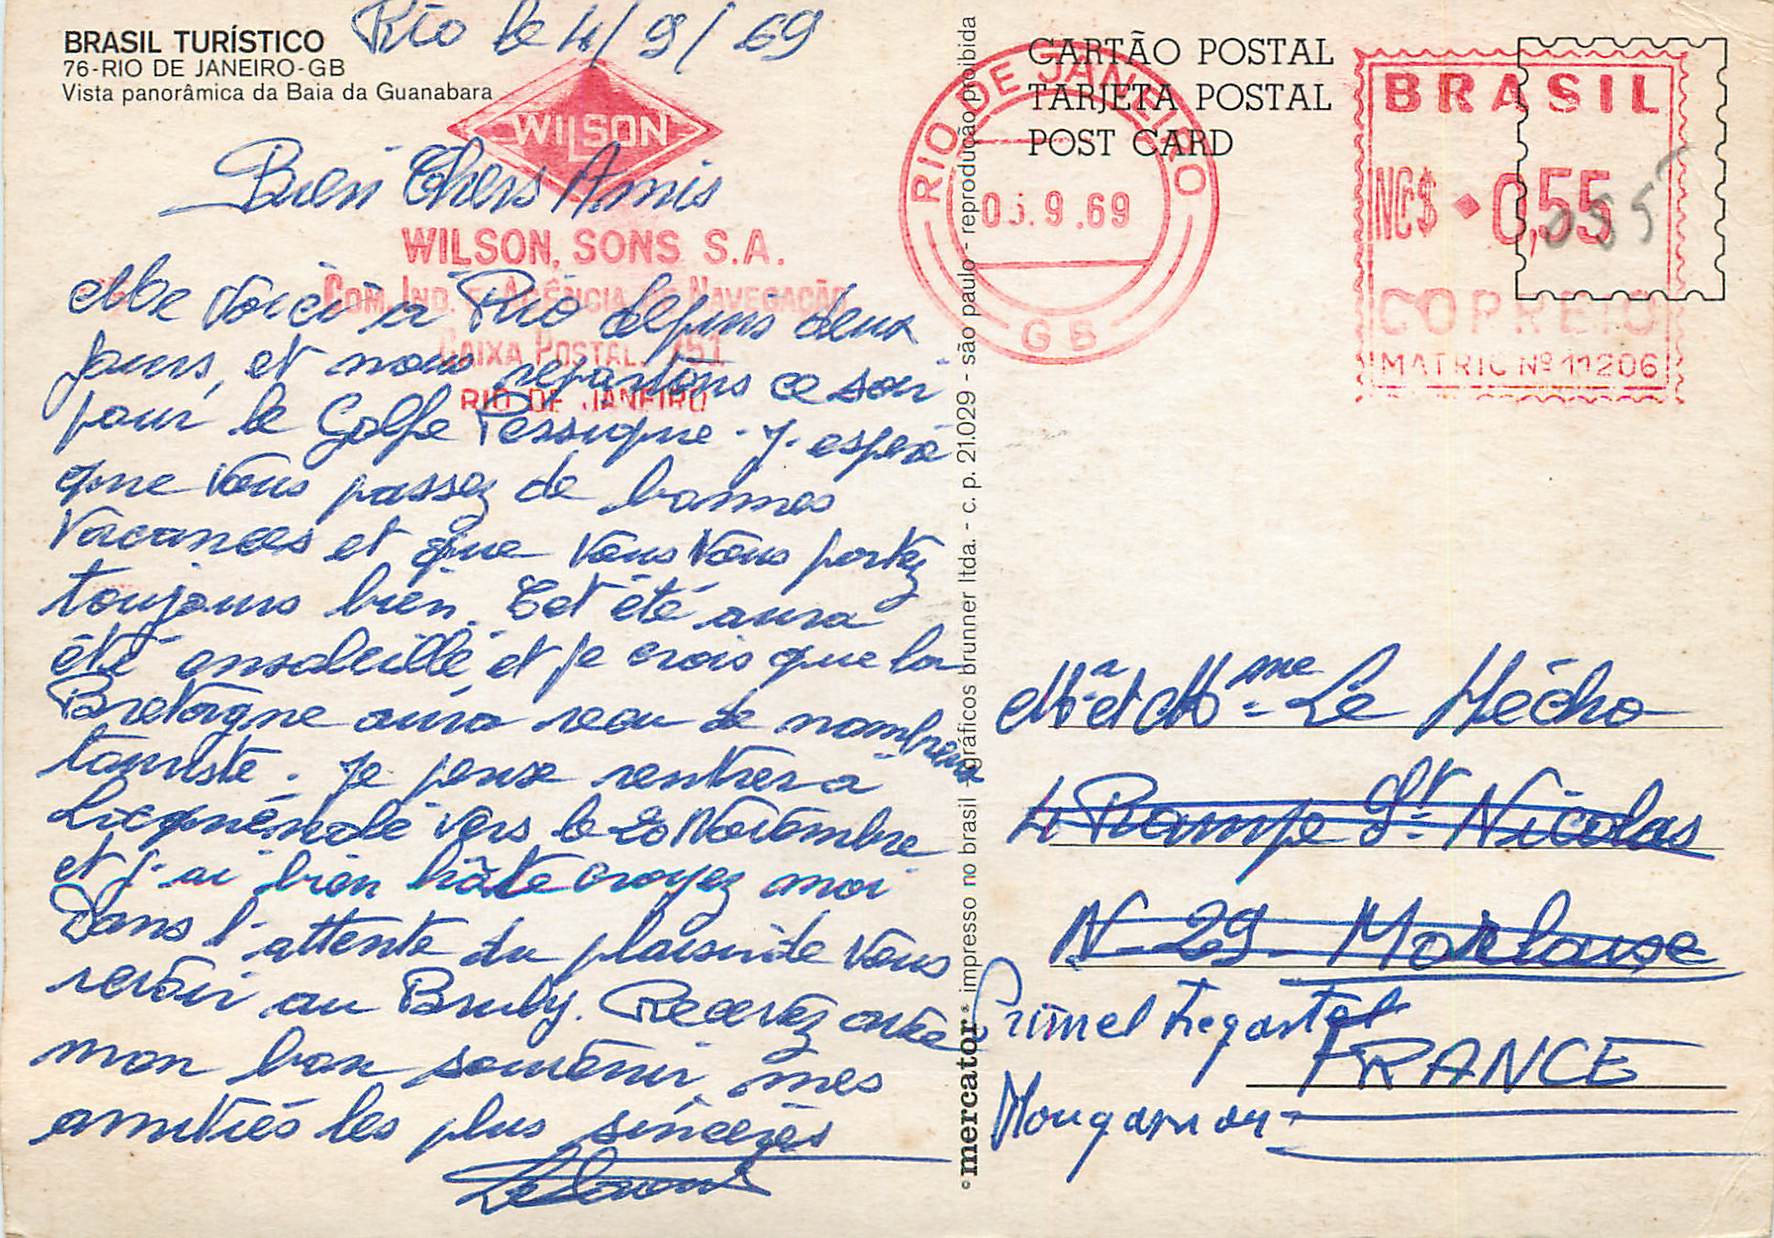 BRASIL TURÍSTICO
76-RIO DE JANEIRO-GB
Vista panorâmica da Baia da Guanabara
Rio le 4/9/69
WILSON
WILSON, SONS S.A.
COM. IND. E AGÊNCIA DE NAVEGAÇÃO
CAIXA POSTAL, 751
RIO DE JANEIRO
Bien Chers Amis
Me voici à Rio depuis deux
jours, et nous repartons ce soir
pour le Golfe Persique. J'espère
que vous passez de bonnes
vacances et que vous vous portez
toujours bien. Cet été aura
été ensoleillé et je crois que la
Bretagne aura reçu de nombreux
touriste. Je pense rentrer à
vers le 20 Novembre
et j'ai bien hâte croyez moi
Dans l'attente du plaisir de vous
revoir au Bruly. Recevez avec
mon bon souvenir, mes
amitiés les plus sincères
impresso no brasil - gráficos brunner ltda. - c. p. 21.029 - são paulo - reprodução proibida
© mercator
CARTÃO POSTAL
TARJETA POSTAL
POST CARD
RIO DE JANEIRO
05.9.69
GB
BRASIL
NCr$ 0,55
055
CORREIO
MATRIC Nº 11206
Mr et Mme Le Hécho
4 Rampe St Nicolas
N-29- Morlaise
Primel Tregastel
FRANCE